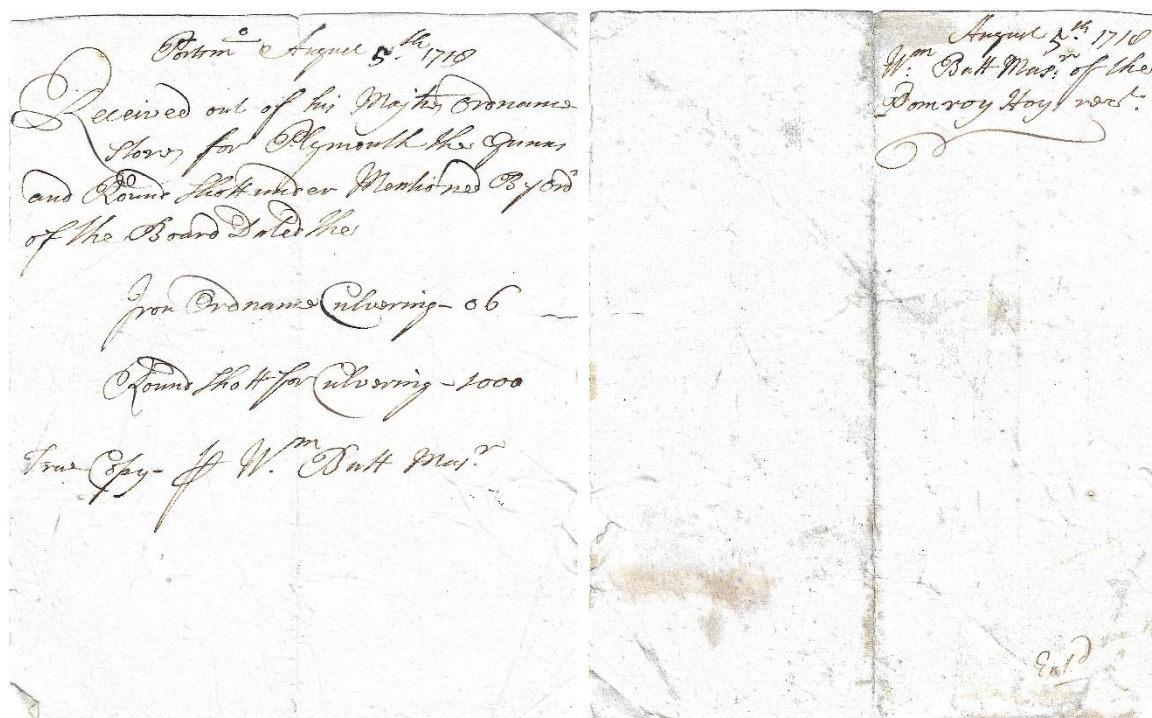 Portsmo August 5th 1718
Received out of his Majties Ordnance
Stores for Plymouth the Gunns
and Round Shott under Mentioned By Ordr
of the Board Dated the
Iron Ordnance Culvering - 06
Round Shott for Culvering - 1000
True Copy - Wm Batt Masr
August 5th 1718
Wm Batt Masr of the
Pomroy Hoy rect.
Entd